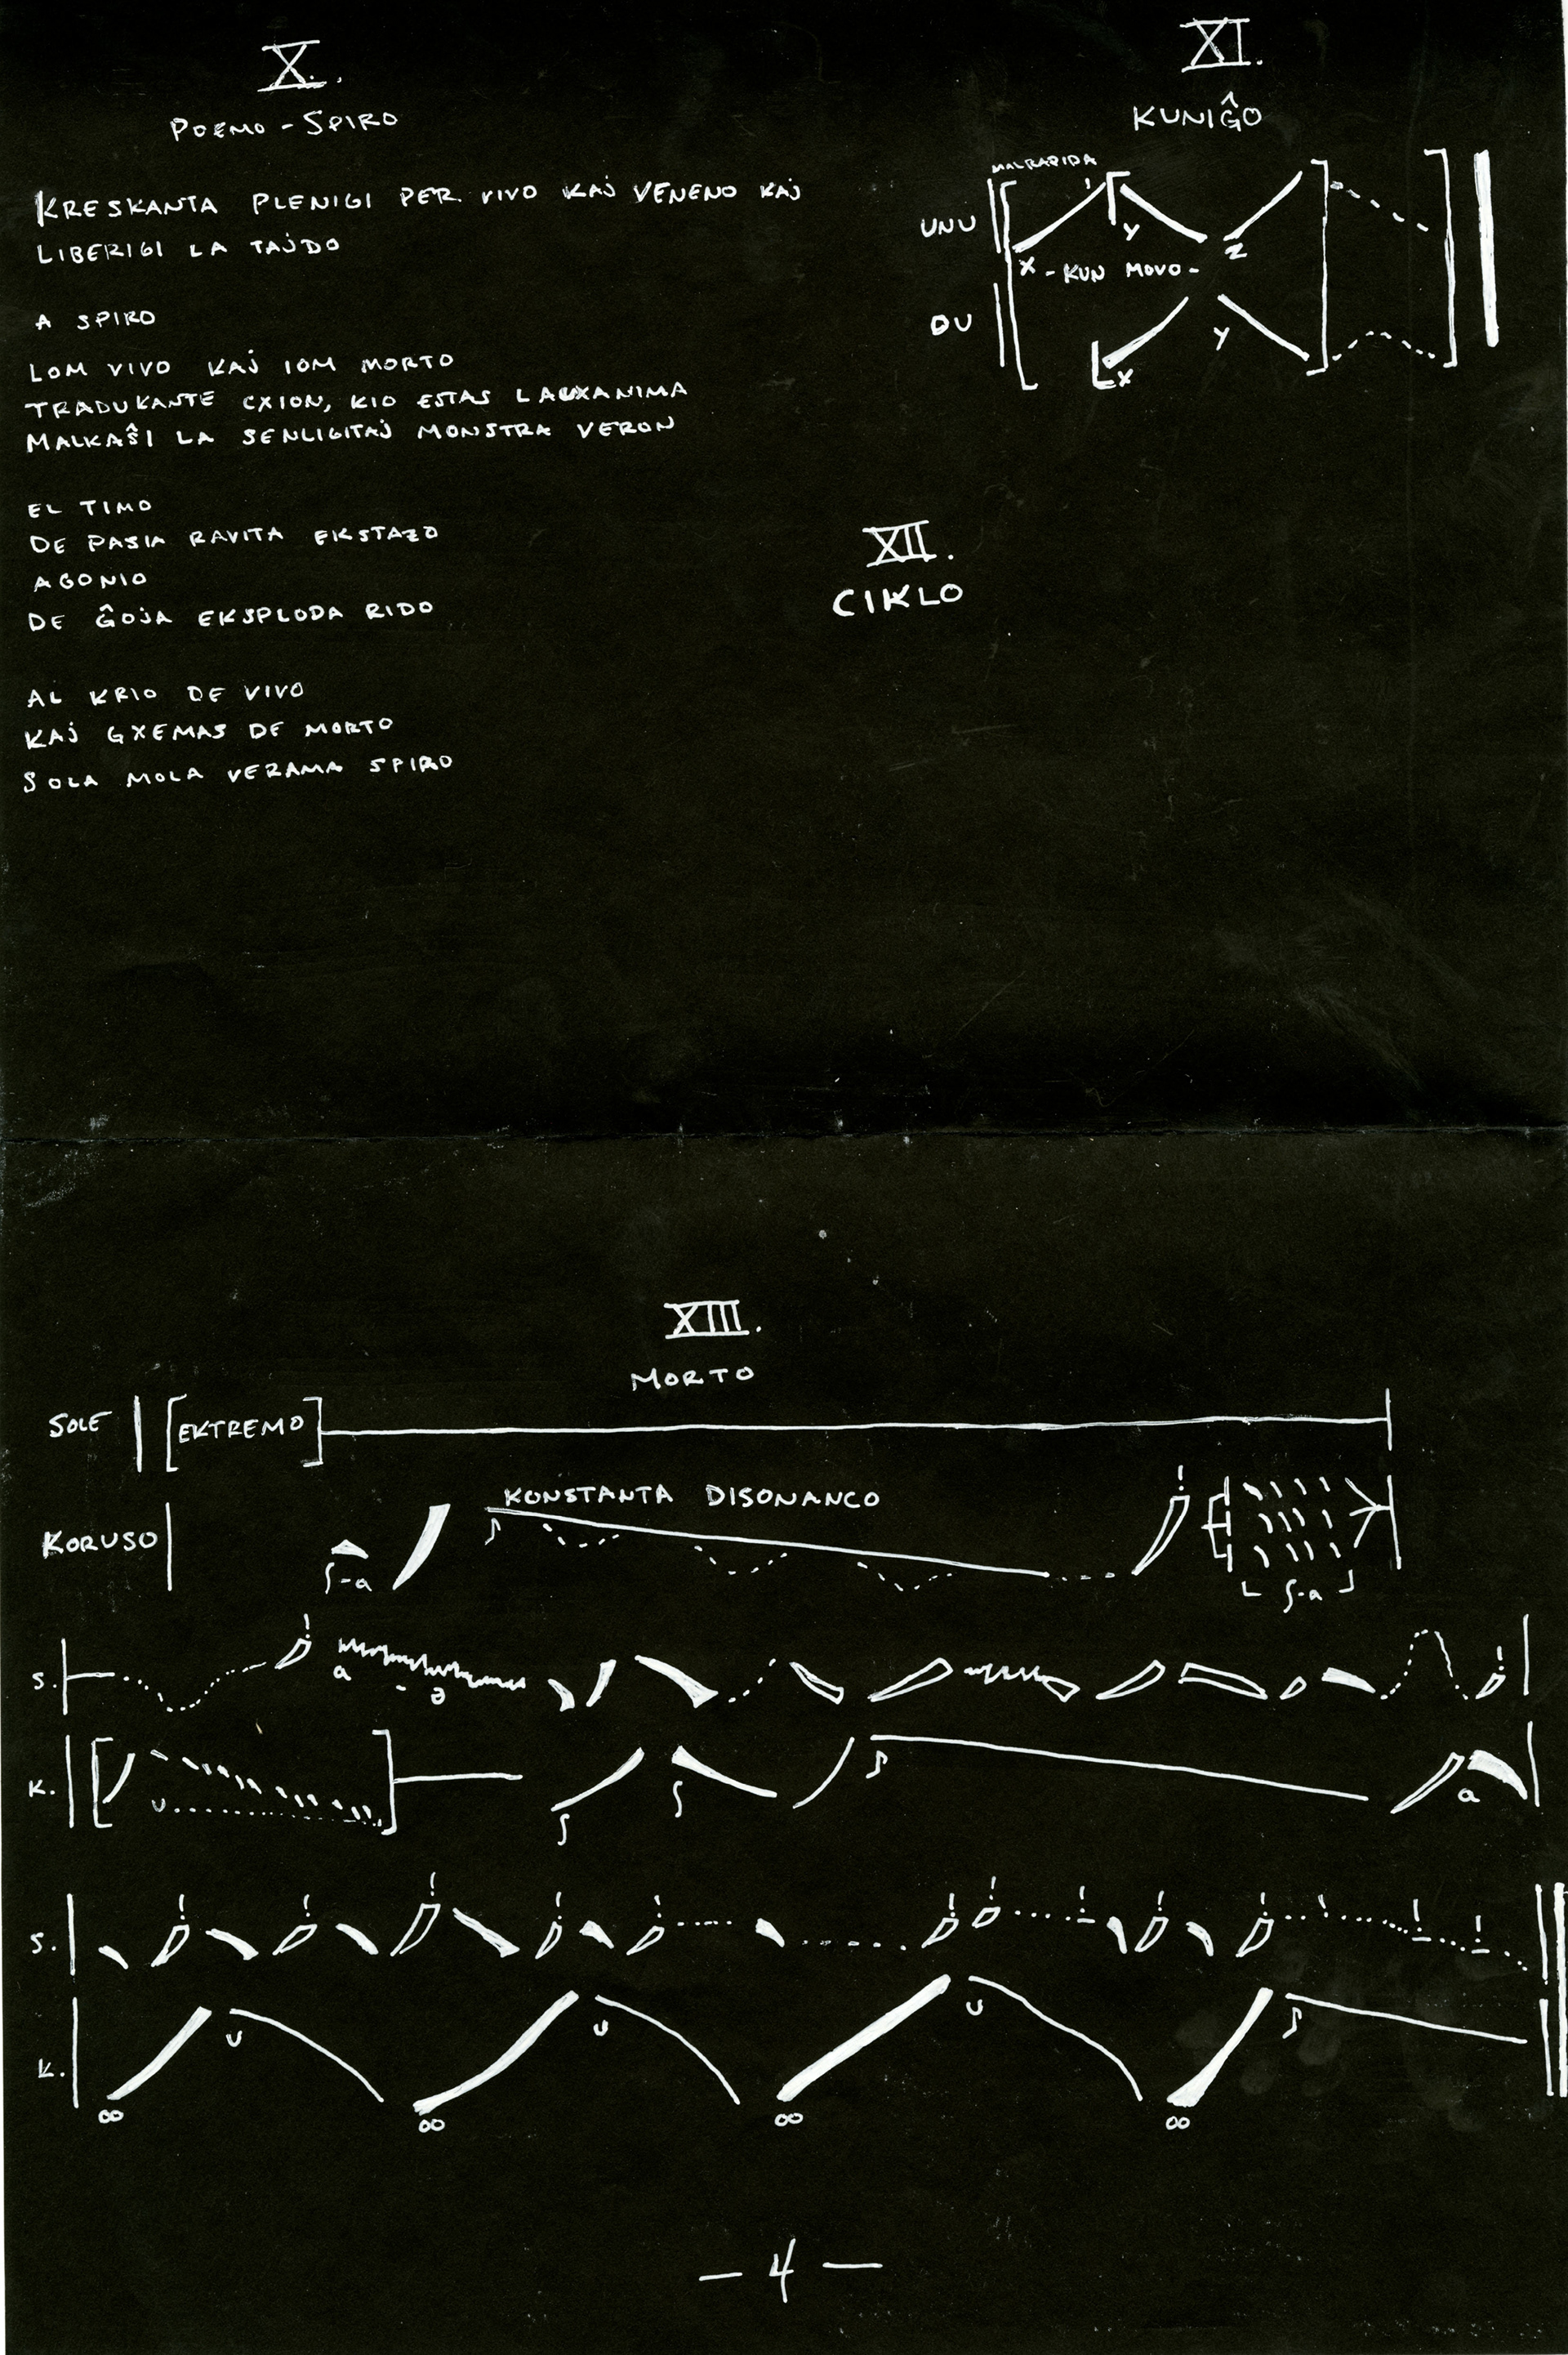 X.
POEMO - SPIRO
KRESKANTA PLENIGI PER VIVO KAJ VENENO KAJ
LIBERIGI LA TAJDO
A SPIRO
LOM VIVO KAJ IOM MORTO
TRADUKANTE CXION, KIO ESTAS LAUXANIMA
MALKAŜI LA SENLIGITAJ MONSTRA VERON
EL TIMO
DE PASIA RAVITA EKSTAZO
AGONIO
DE ĜOJA EKSPLODA RIDO
AL KRIO DE VIVO
KAJ GXEMAS DE MORTO
SOLA MOLA VERAMA SPIRO
XI.
KUNIĜO
MALRAPIDA
UNU
Y
Z
X - KUN MOVO -
DU
Y
X
XII.
CIKLO
XIII.
MORTO
SOLE [EKTREMO]
KONSTANTA DISONANCO
KORUSO
ʃ-a
ʃ-a
S.
a - ə
K.
U
ʃ
ʃ
a
S.
K.
U
U
U
∞
∞
∞
∞
- 4 -